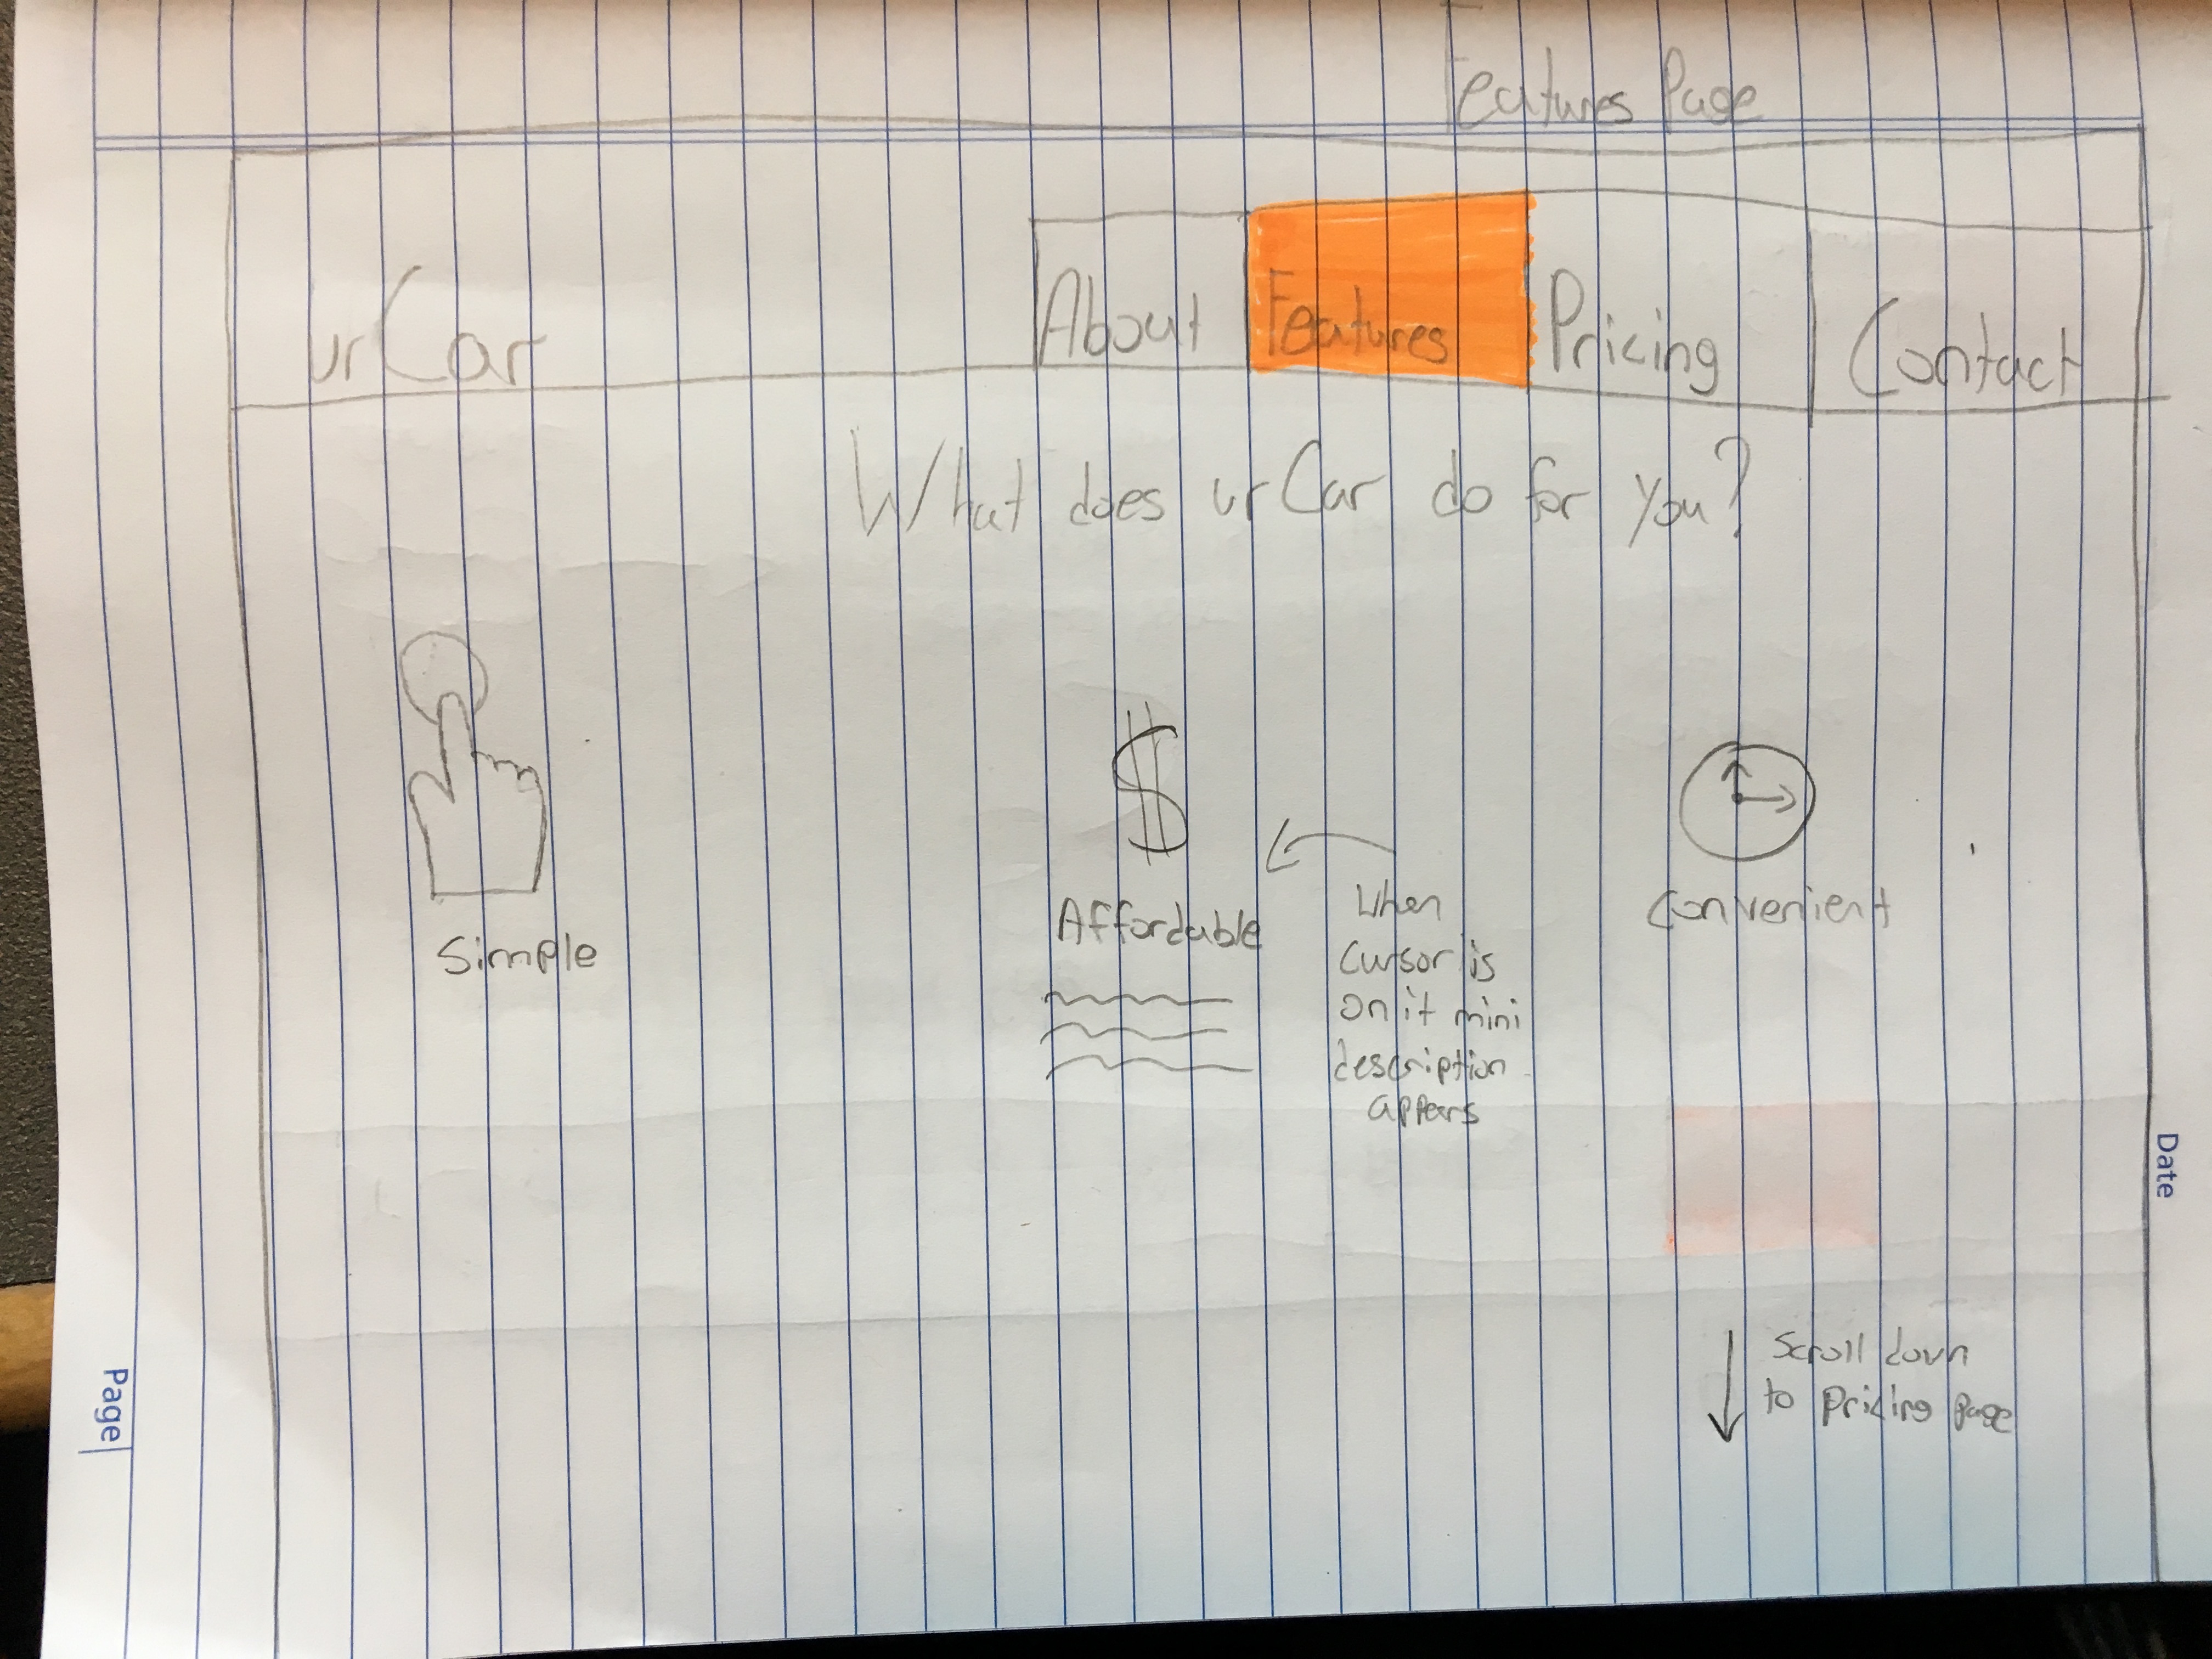 Features Page
urCar
About
Features
Pricing
Contact
What does urCar do for you?
$
Simple
Affordable
Convenient
When
cursor is
on it mini
description
appears
Scroll down
to pricing page
Date
Page